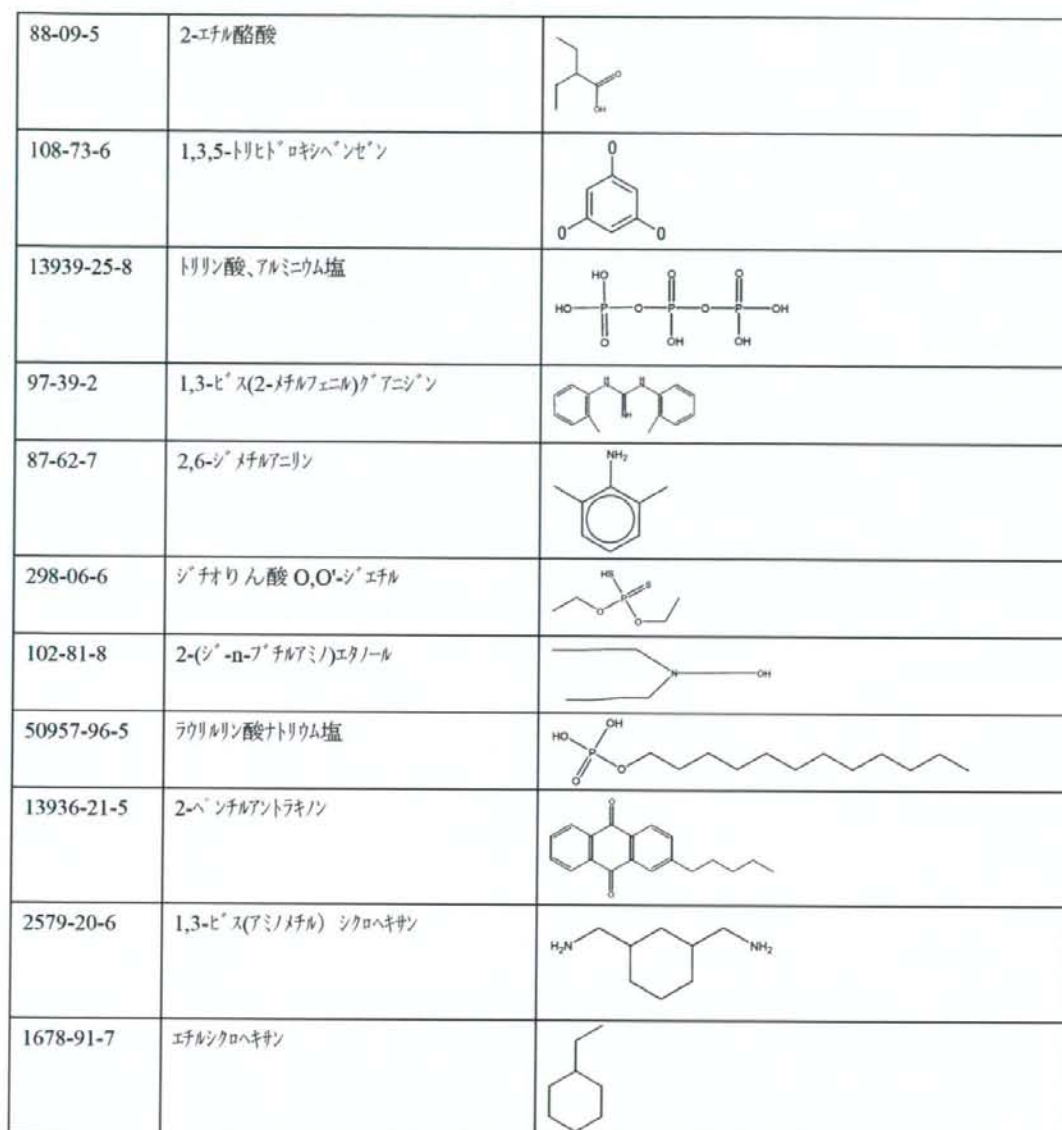 88-09-5 2-エチル酪酸
O
OH
108-73-6 1,3,5-トリヒドロキシベンゼン
O
O O
13939-25-8 トリリン酸、アルミニウム塩
HO O O
HO P O P O P OH
O OH OH
97-39-2 1,3-ビス(2-メチルフェニル)グアニジン
H H
N N
NH
87-62-7 2,6-ジメチルアニリン
NH₂
298-06-6 ジチオりん酸 O,O'-ジエチル
HS
P S
O O
102-81-8 2-(ジ-n-ブチルアミノ)エタノール
N OH
50957-96-5 ラウリルリン酸ナトリウム塩
OH
HO P
O O
13936-21-5 2-ペンチルアントラキノン
O
O
2579-20-6 1,3-ビス(アミノメチル) シクロヘキサン
H₂N NH₂
1678-91-7 エチルシクロヘキサン